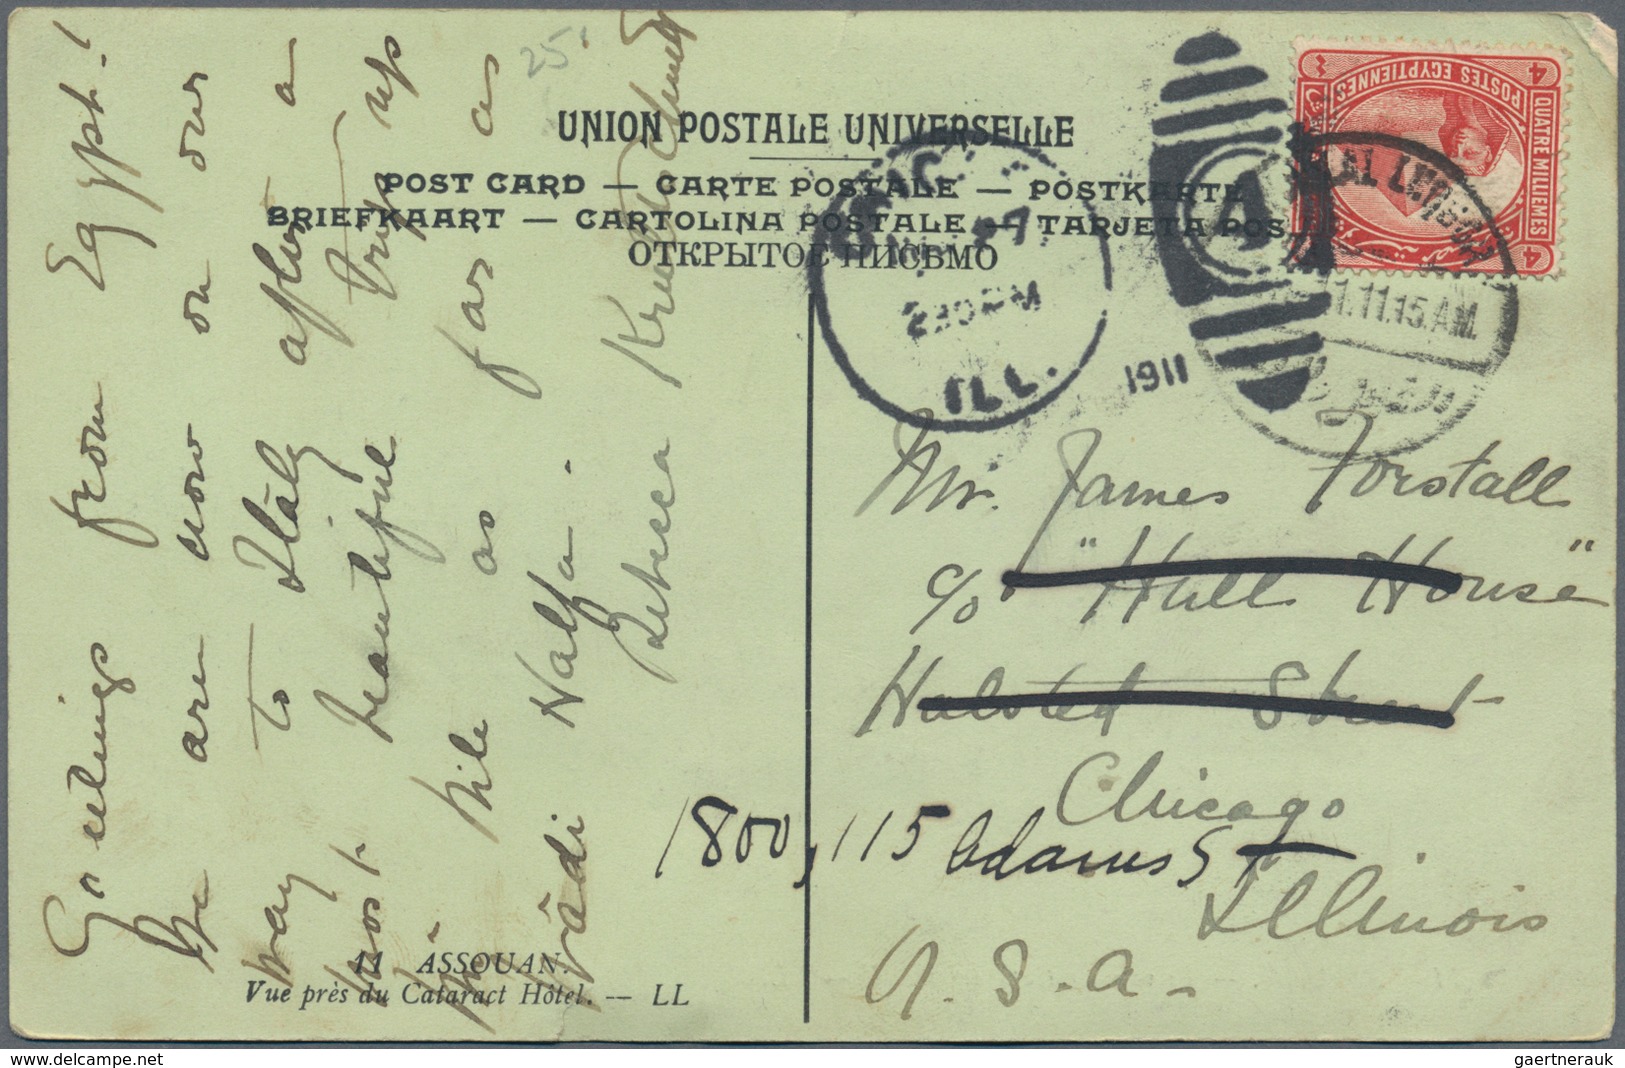 25.
UNION POSTALE UNIVERSELLE
POST CARD — CARTE POSTALE — POSTKARTE
BRIEFKAART — CARTOLINA POSTALE — TARJETA POS
ОТКРЫТОЕ ПИСЬМО
Greetings from Egypt!
We are now on our
way to Italy after a
most beautiful trip up
Nile as far as
Wadi Halfa.
Rebecca
11 ASSOUAN.
Vue près du Cataract Hôtel. — LL
POSTES EGYPTIENNES
QUATRE MILLIEMES
4
4
7
230 PM
ILL.
1911
11.15.AM
Mr. James Forstall
c/o "Hull House"
Halsted Street
Chicago
1800, 115 Adams St
Illinois
U.S.A.
gaertnerauk
www.delcampe.net